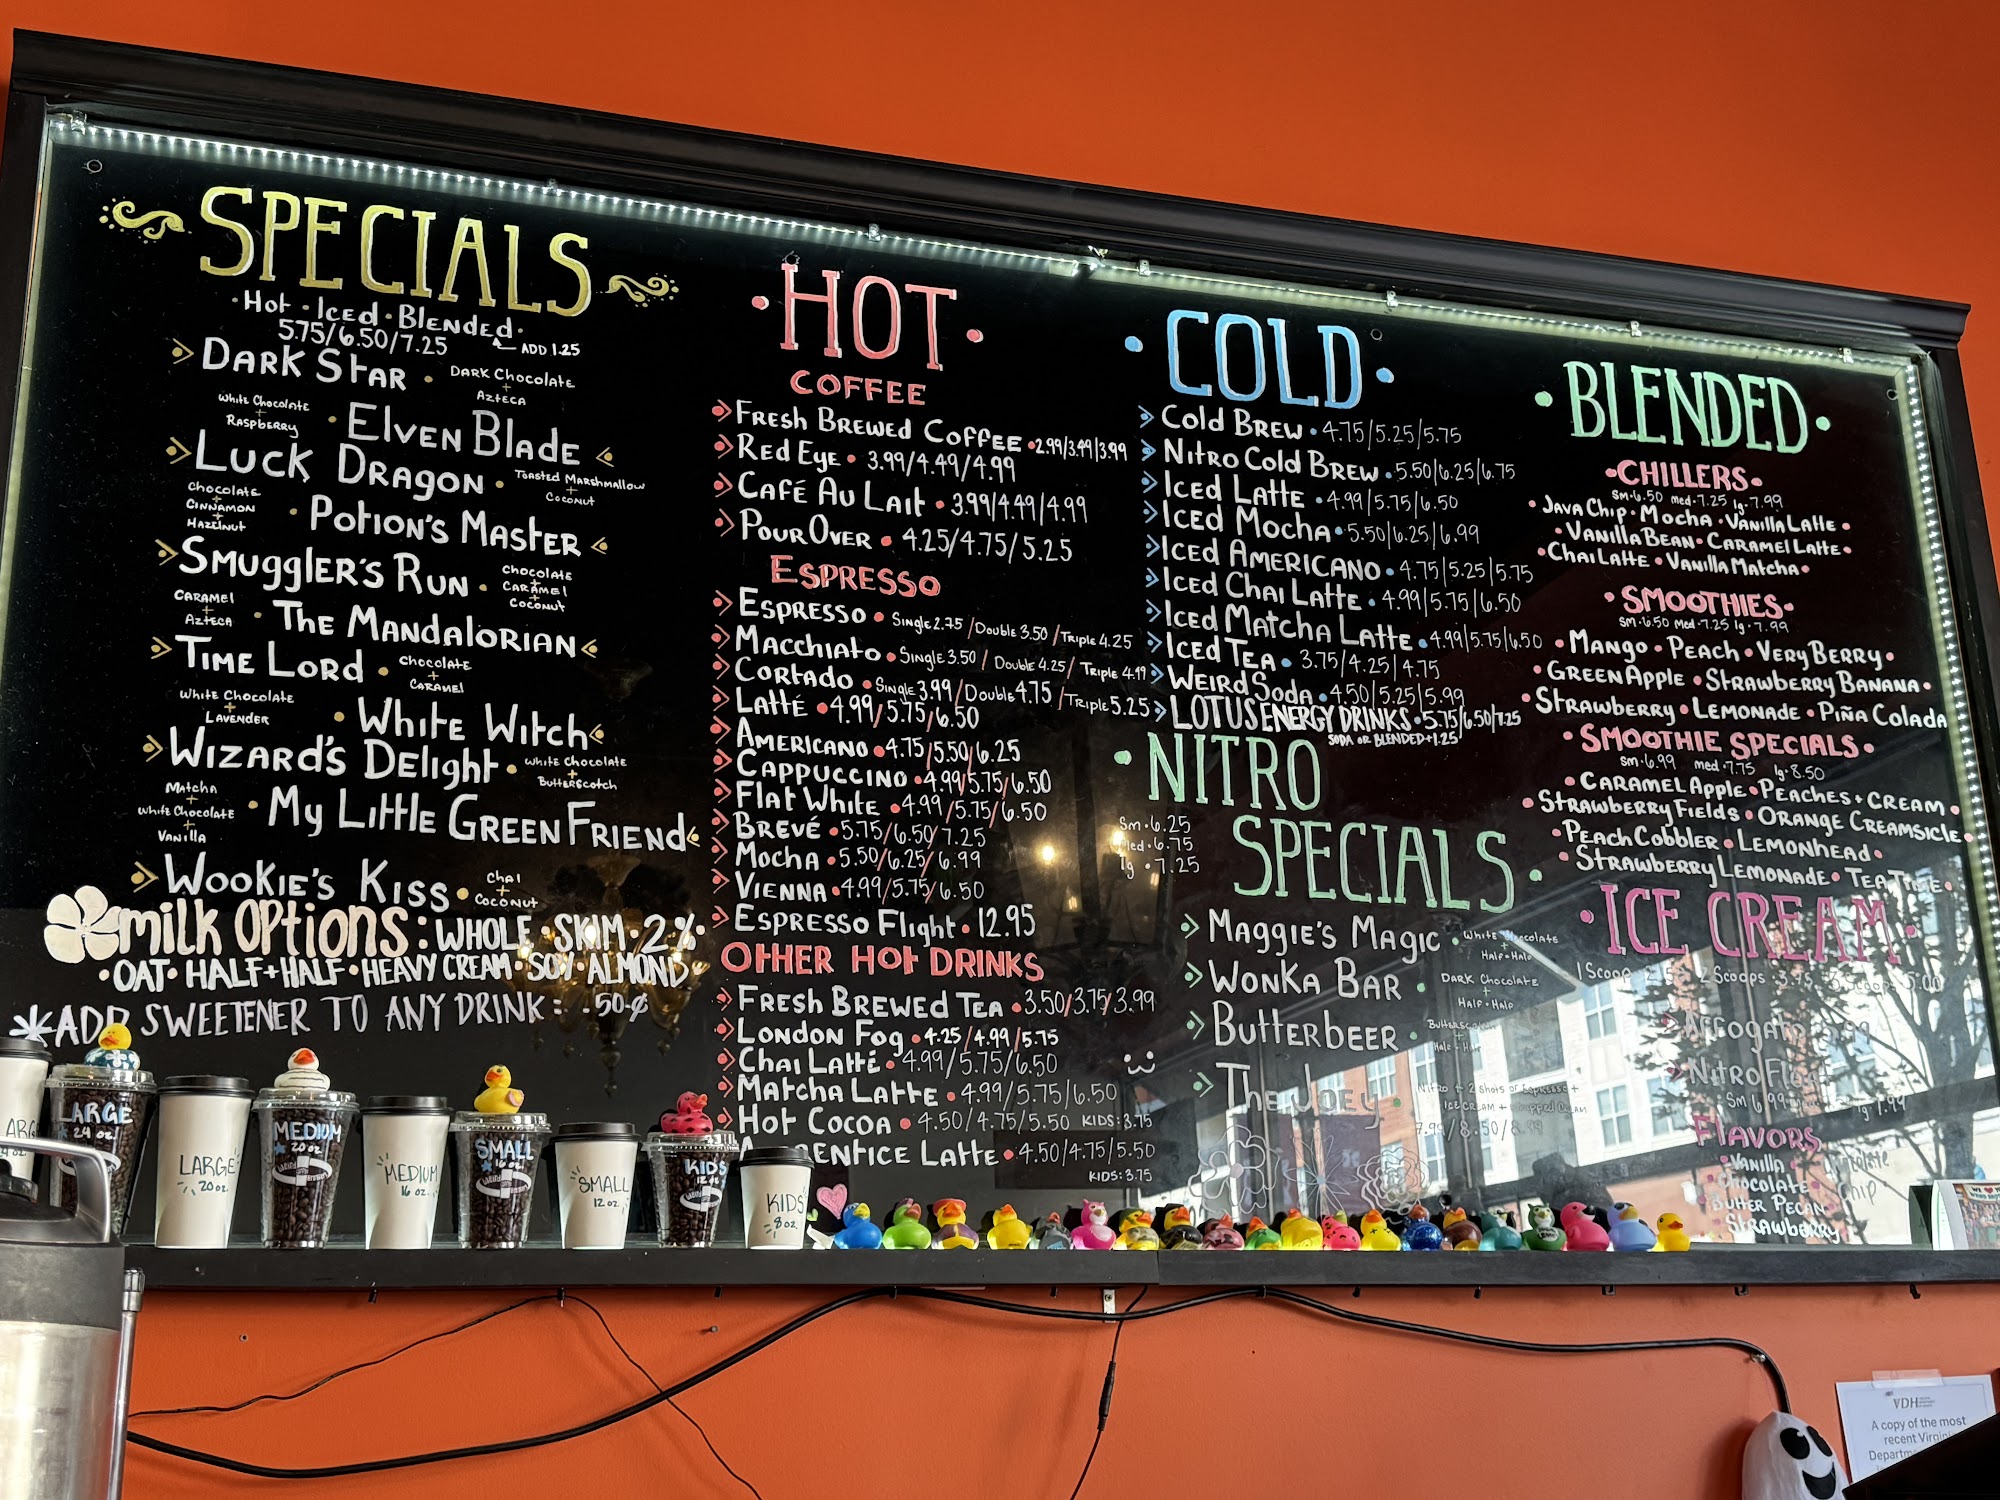 SPECIALS
·Hot·Iced·Blended·
5.75/6.50/7.25
ADD 1.25
Dark Star · Dark Chocolate + Azteca
White Chocolate + Raspberry · Elven Blade
Luck Dragon · Toasted Marshmallow + Coconut
Chocolate + Cinnamon + Hazelnut · Potion's Master
Smuggler's Run · Chocolate + Caramel + Coconut
Caramel + Azteca · The Mandalorian
Time Lord · Chocolate + Caramel
White Chocolate + Lavender · White Witch
Wizard's Delight · White Chocolate + Butterscotch
Matcha + White Chocolate + Vanilla · My Little Green Friend
Wookie's Kiss · Chai + Coconut
Milk Options: WHOLE·SKIM·2%·
·OAT·HALF+HALF·HEAVY CREAM·SOY·ALMOND
*ADD SWEETENER TO ANY DRINK: .50¢
·HOT·
COFFEE
Fresh Brewed Coffee · 2.99/3.49/3.99
Red Eye · 3.99/4.49/4.99
Café Au Lait · 3.99/4.49/4.99
Pour Over · 4.25/4.75/5.25
ESPRESSO
Espresso · Single 2.75/Double 3.50/Triple 4.25
Macchiato · Single 3.50/Double 4.25/Triple 4.99
Cortado · Single 3.99/Double 4.75/Triple 5.25
Latté · 4.99/5.75/6.50
Americano · 4.75/5.50/6.25
Cappuccino · 4.99/5.75/6.50
Flat White · 4.99/5.75/6.50
Brevé · 5.75/6.50/7.25
Mocha · 5.50/6.25/6.99
Vienna · 4.99/5.75/6.50
Espresso Flight · 12.95
OTHER HOT DRINKS
Fresh Brewed Tea · 3.50/3.75/3.99
London Fog · 4.25/4.99/5.75
Chai Latté · 4.99/5.75/6.50
Matcha Latte · 4.99/5.75/6.50
Hot Cocoa · 4.50/4.75/5.50 KIDS: 3.75
Latte · 4.50/4.75/5.50
KIDS: 3.75
·COLD·
Cold Brew · 4.75/5.25/5.75
Nitro Cold Brew · 5.50/6.25/6.75
Iced Latte · 4.99/5.75/6.50
Iced Mocha · 5.50/6.25/6.99
Iced Americano · 4.75/5.25/5.75
Iced Chai Latte · 4.99/5.75/6.50
Iced Matcha Latte · 4.99/5.75/6.50
Iced Tea · 3.75/4.25/4.75
Weird Soda · 4.50/5.25/5.99
LOTUS ENERGY DRINKS · 5.75/6.50/7.25
SODA OR BLENDED +1.25
·NITRO
SPECIALS·
Sm · 6.25
med · 6.75
lg · 7.25
Maggie's Magic · White Chocolate + Half+Half
Wonka Bar · Dark Chocolate + Half+Half
Butterbeer · Butterscotch + Half+Half
The Joey · Nitro + 2 Shots of Espresso +
Ice Cream + Whipped Cream
7.99/8.50/8.99
·BLENDED·
·CHILLERS·
sm·6.50 med·7.25 lg·7.99
·Java Chip·Mocha·Vanilla Latte·
·Vanilla Bean·Caramel Latte·
·Chai Latte·Vanilla Matcha·
·SMOOTHIES·
sm·6.50 med·7.25 lg·7.99
·Mango·Peach·Very Berry·
·Green Apple·Strawberry Banana·
·Strawberry·Lemonade·Piña Colada
·SMOOTHIE SPECIALS·
sm·6.99 med·7.75 lg·8.50
·Caramel Apple·Peaches+Cream·
·Strawberry Fields·Orange Creamsicle·
·Peach Cobbler·Lemonhead·
·Strawberry Lemonade·Tea Time·
·ICE CREAM·
1 Scoop 2 Scoops: 3.75 5.00
Affogato
Nitro Float
Sm 6.99 lg 7.99
FLAVORS
·Vanilla·
Chocolate·
Chocolate Chip
·Butter Pecan
·Strawberry
LARGE
24 oz.
LARGE
20 oz.
MEDIUM
20 oz.
MEDIUM
16 oz.
SMALL
16 oz.
SMALL
12 oz.
KIDS
12 oz.
KIDS
8 oz.
VDH
A copy of the most
recent Virginia